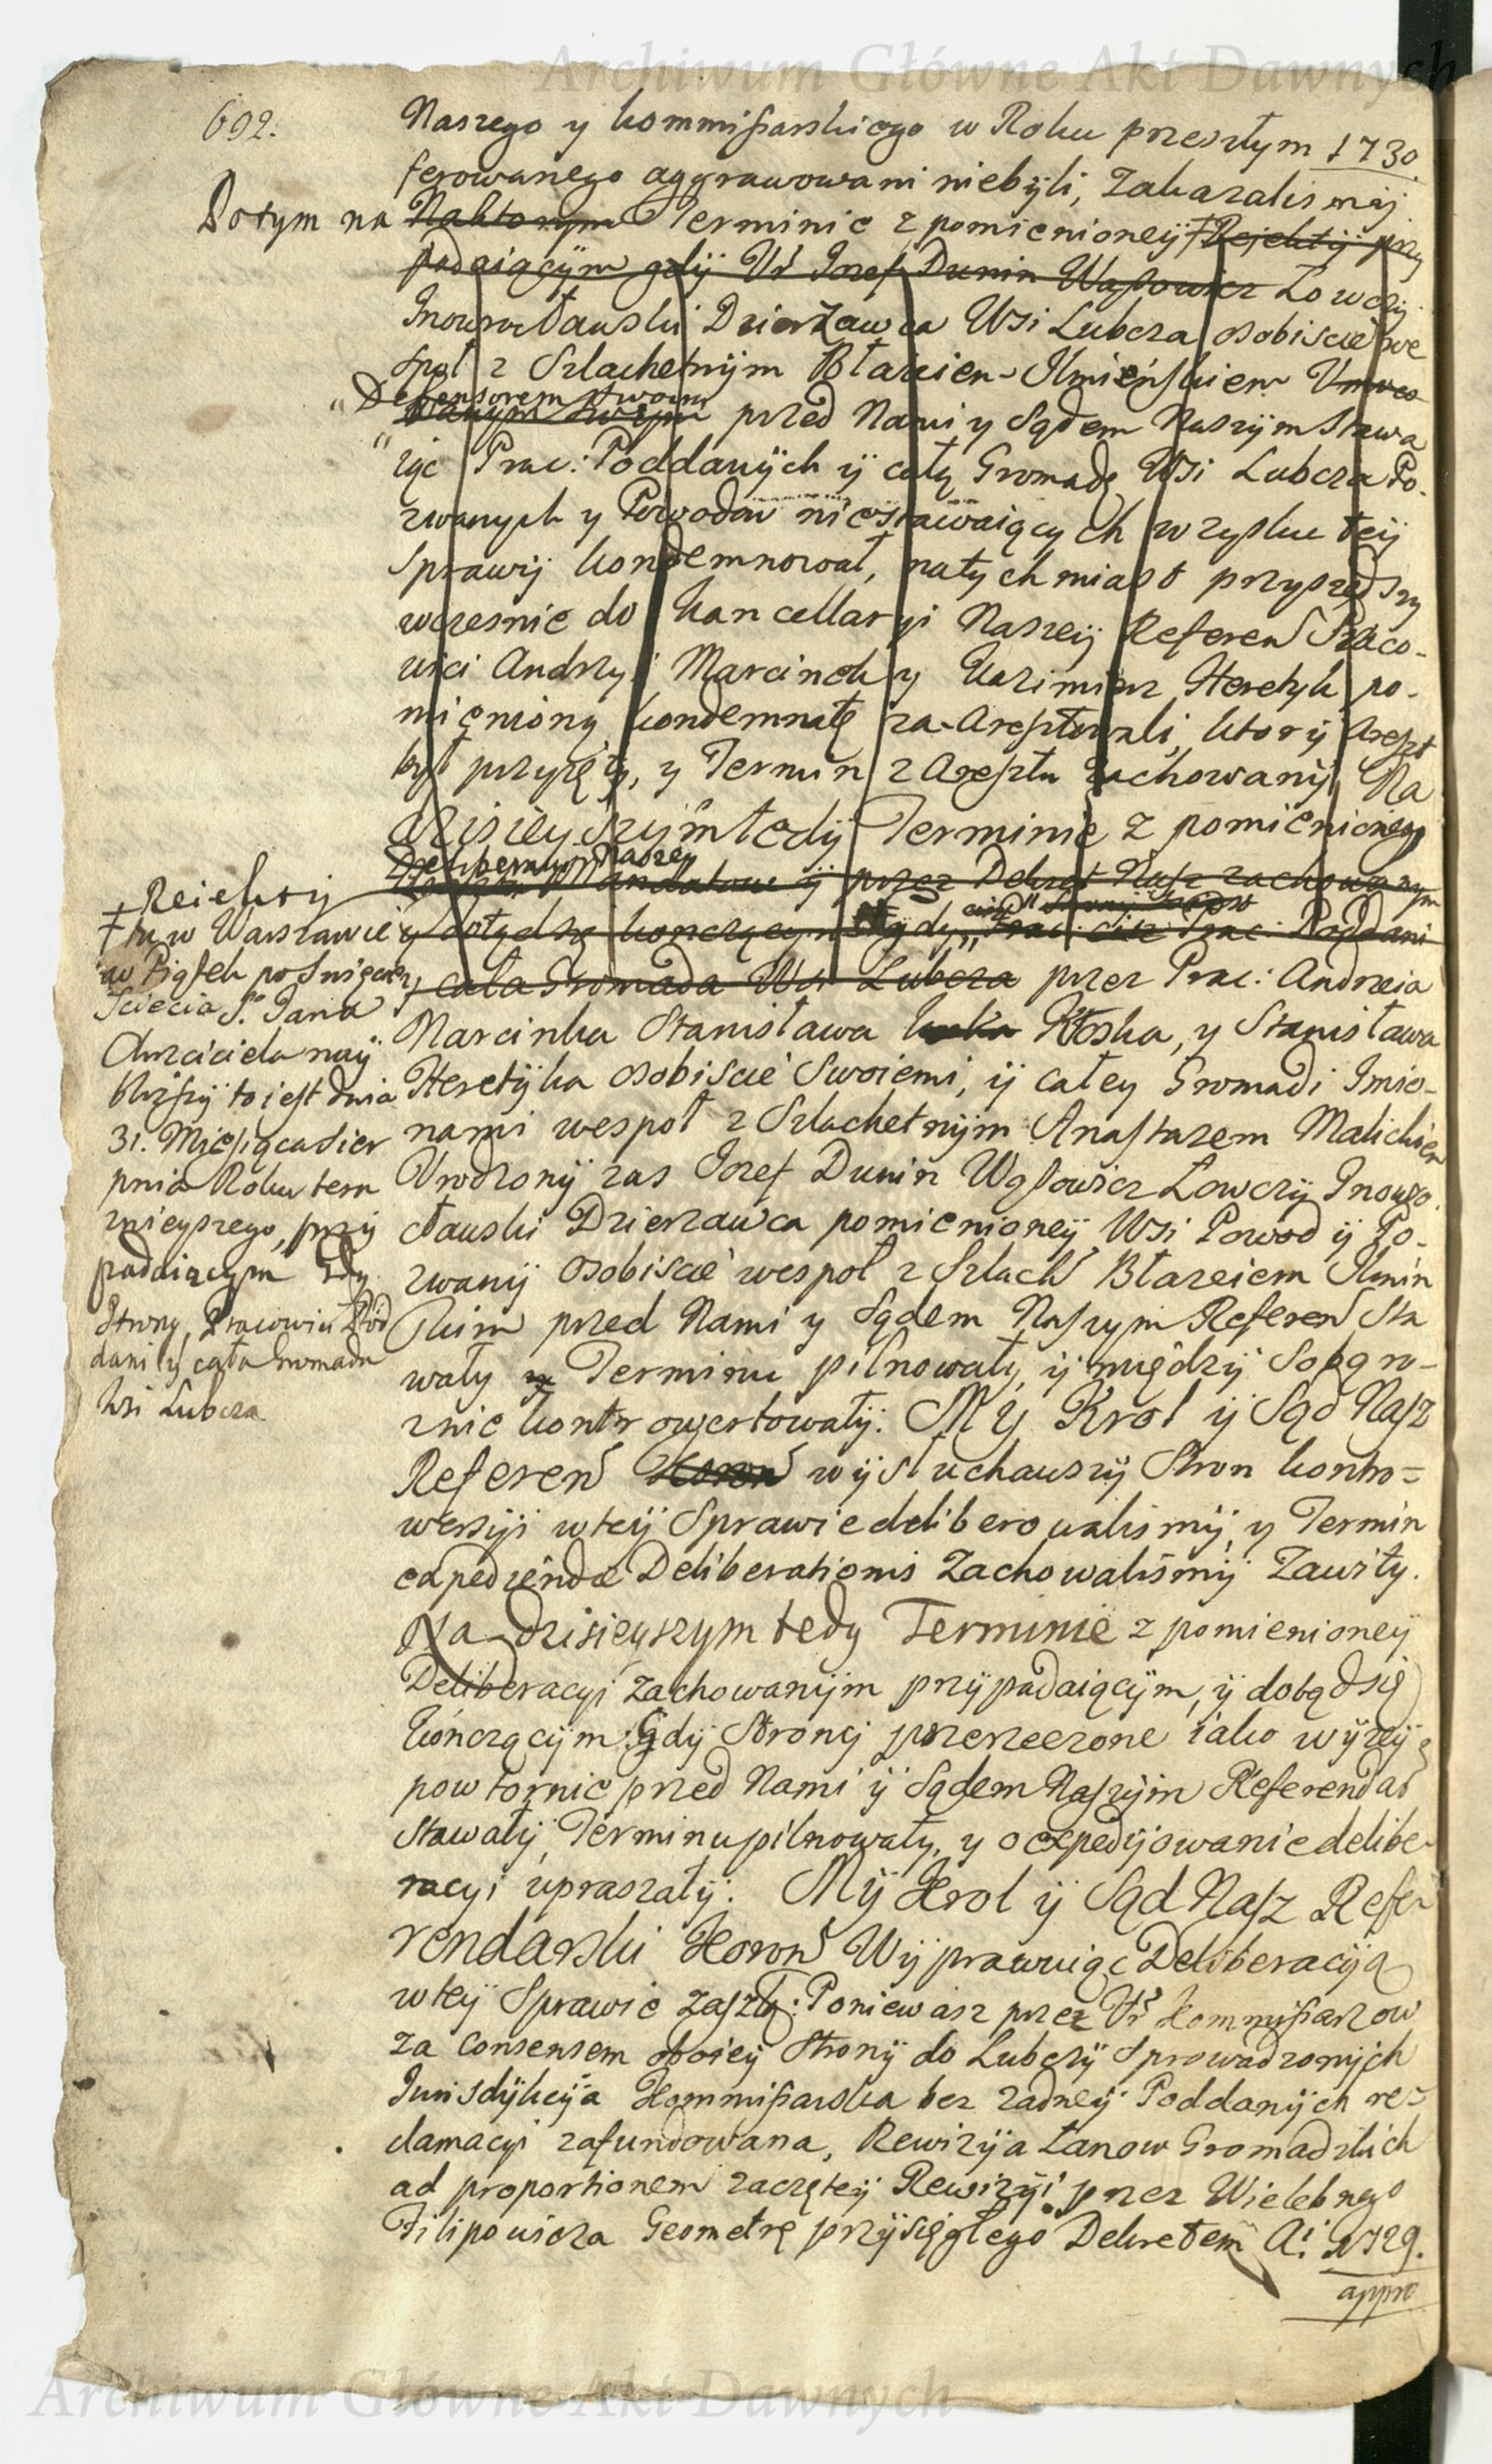 Archiwum Główne Akt Dawnych
692.
Naszego y kommissarskiego w Roku przeszłym 1730.
ferowanego aggrawowani niebyli, Zakazalismÿ
Potym na Naktorym Terminie z pomienioneÿ † Rejektÿ przy
padaiącÿm gdÿ Ur̃ Jozef Dunin Wąsowicz Łowczÿ
Inowrocławski Dzierżawca Wsi Lubcza osobiscie we
społ z Szlachetnÿm Błazien Ilmieńskiem Umoco
Defensorem swoim
wanym swoym przed Nami y Sądem Naszÿm stawa
iąc Prac: Poddanÿch ÿ całą Gromadę Wsi Lubcza Po-
zwanych y Powodow niestawaiących w zysku teÿ
Sprawÿ kondemnował, natychmiast przyszedszy
wczesnie do Kancellaryi Naszeÿ Referen̄ Praco-
wici Andrzyi Marcinek y Kazimierz Heretyk po-
mienioną kondemnatę za-Aresztowali, ktorÿ Areszt
był przyięty, y Termin z Aresztu zachowanÿ, Na
dzisieyszÿm tedÿ Terminie z pomienioney
Deliberacyi Naszey
ÿ przez Dekret Nasz zachowanym
y dotądsię konczącym gdy Prac: Poddani
y cała Gromada Wsi Lubcza przez Prac: Andrzeia
Marcinka Stanisława Kłoska, y Stanisława
Heretÿka osobiscie Swoiemi, ÿ całey Gromadi Imio-
nami wespoł z Szlachetnÿm Anastazem Malickiem
Urodzonÿ zas Jozef Dunin Wąsowicz Łowczÿ Inowro-
cławski Dzierzawca pomienioneÿ Wsi Powod ÿ Po-
zwanÿ osobiscie wespoł z Szlach̄ Błazeiem Ilmin
skim przed Nami y Sądem Naszym Referen̄ Sta
wały Terminu pilnowały, ÿ między Sobą ro-
znie kontrowertowałÿ: MY Krol ÿ Sąd Nasz
Referen̄ Koron̄ wÿsłuchawszÿ Stron kontro=
wersÿi wteÿ Sprawie deliberowalismÿ, y Termin
expediendæ Deliberationis Zachowalismÿ Zawiły.
Na dzisieyszym tedy Terminie z pomienioneÿ
Deliberacyi zachowanÿm przÿpadaiącÿm, ÿ dotądsię
kończącÿm: gdÿ Stronÿ przerzeczone iako wÿzeÿ
powtornie przed Nami ÿ Sądem Naszÿm Referendar̄
stawałÿ, Terminu pilnowały, y o expedÿowanie delibe-
racyi upraszałÿ: MŸ Krol ÿ Sąd Nasz Refe-
rendarski Koron̄ Wÿprawuiąc Deliberacÿą
wteÿ Sprawie zaszłą: Poniewasz przez Ur̃ Kommissarzow
za Consensem oboieÿ Stronÿ do Lubczÿ Sprowadzonÿch
Jurisdÿkcÿa Kommissarska bez zadneÿ Poddanÿch re-
clamacyi zafundowana, Rewizÿa Łanow Gromadzkich
ad proportionem zaczęteÿ Rewizÿi przez Wielebnego
Filipowicza Geometrę przÿsięgłego Dekretem Ai 1729.
appro
Reiekty
† tu w Warszawie
w Piątek po Swięcie
Scięcia S. Jana
Chrzciciela naÿ
blizszÿ to iest dnia
31. Miesiąca Sier
pnia Roku tera
znieyszego, przÿ
padaiącym Gdy
Strony, Pracowici Pod
dani ÿ cała Gromada
Wsi Lubcza
Archiwum Główne Akt Dawnych